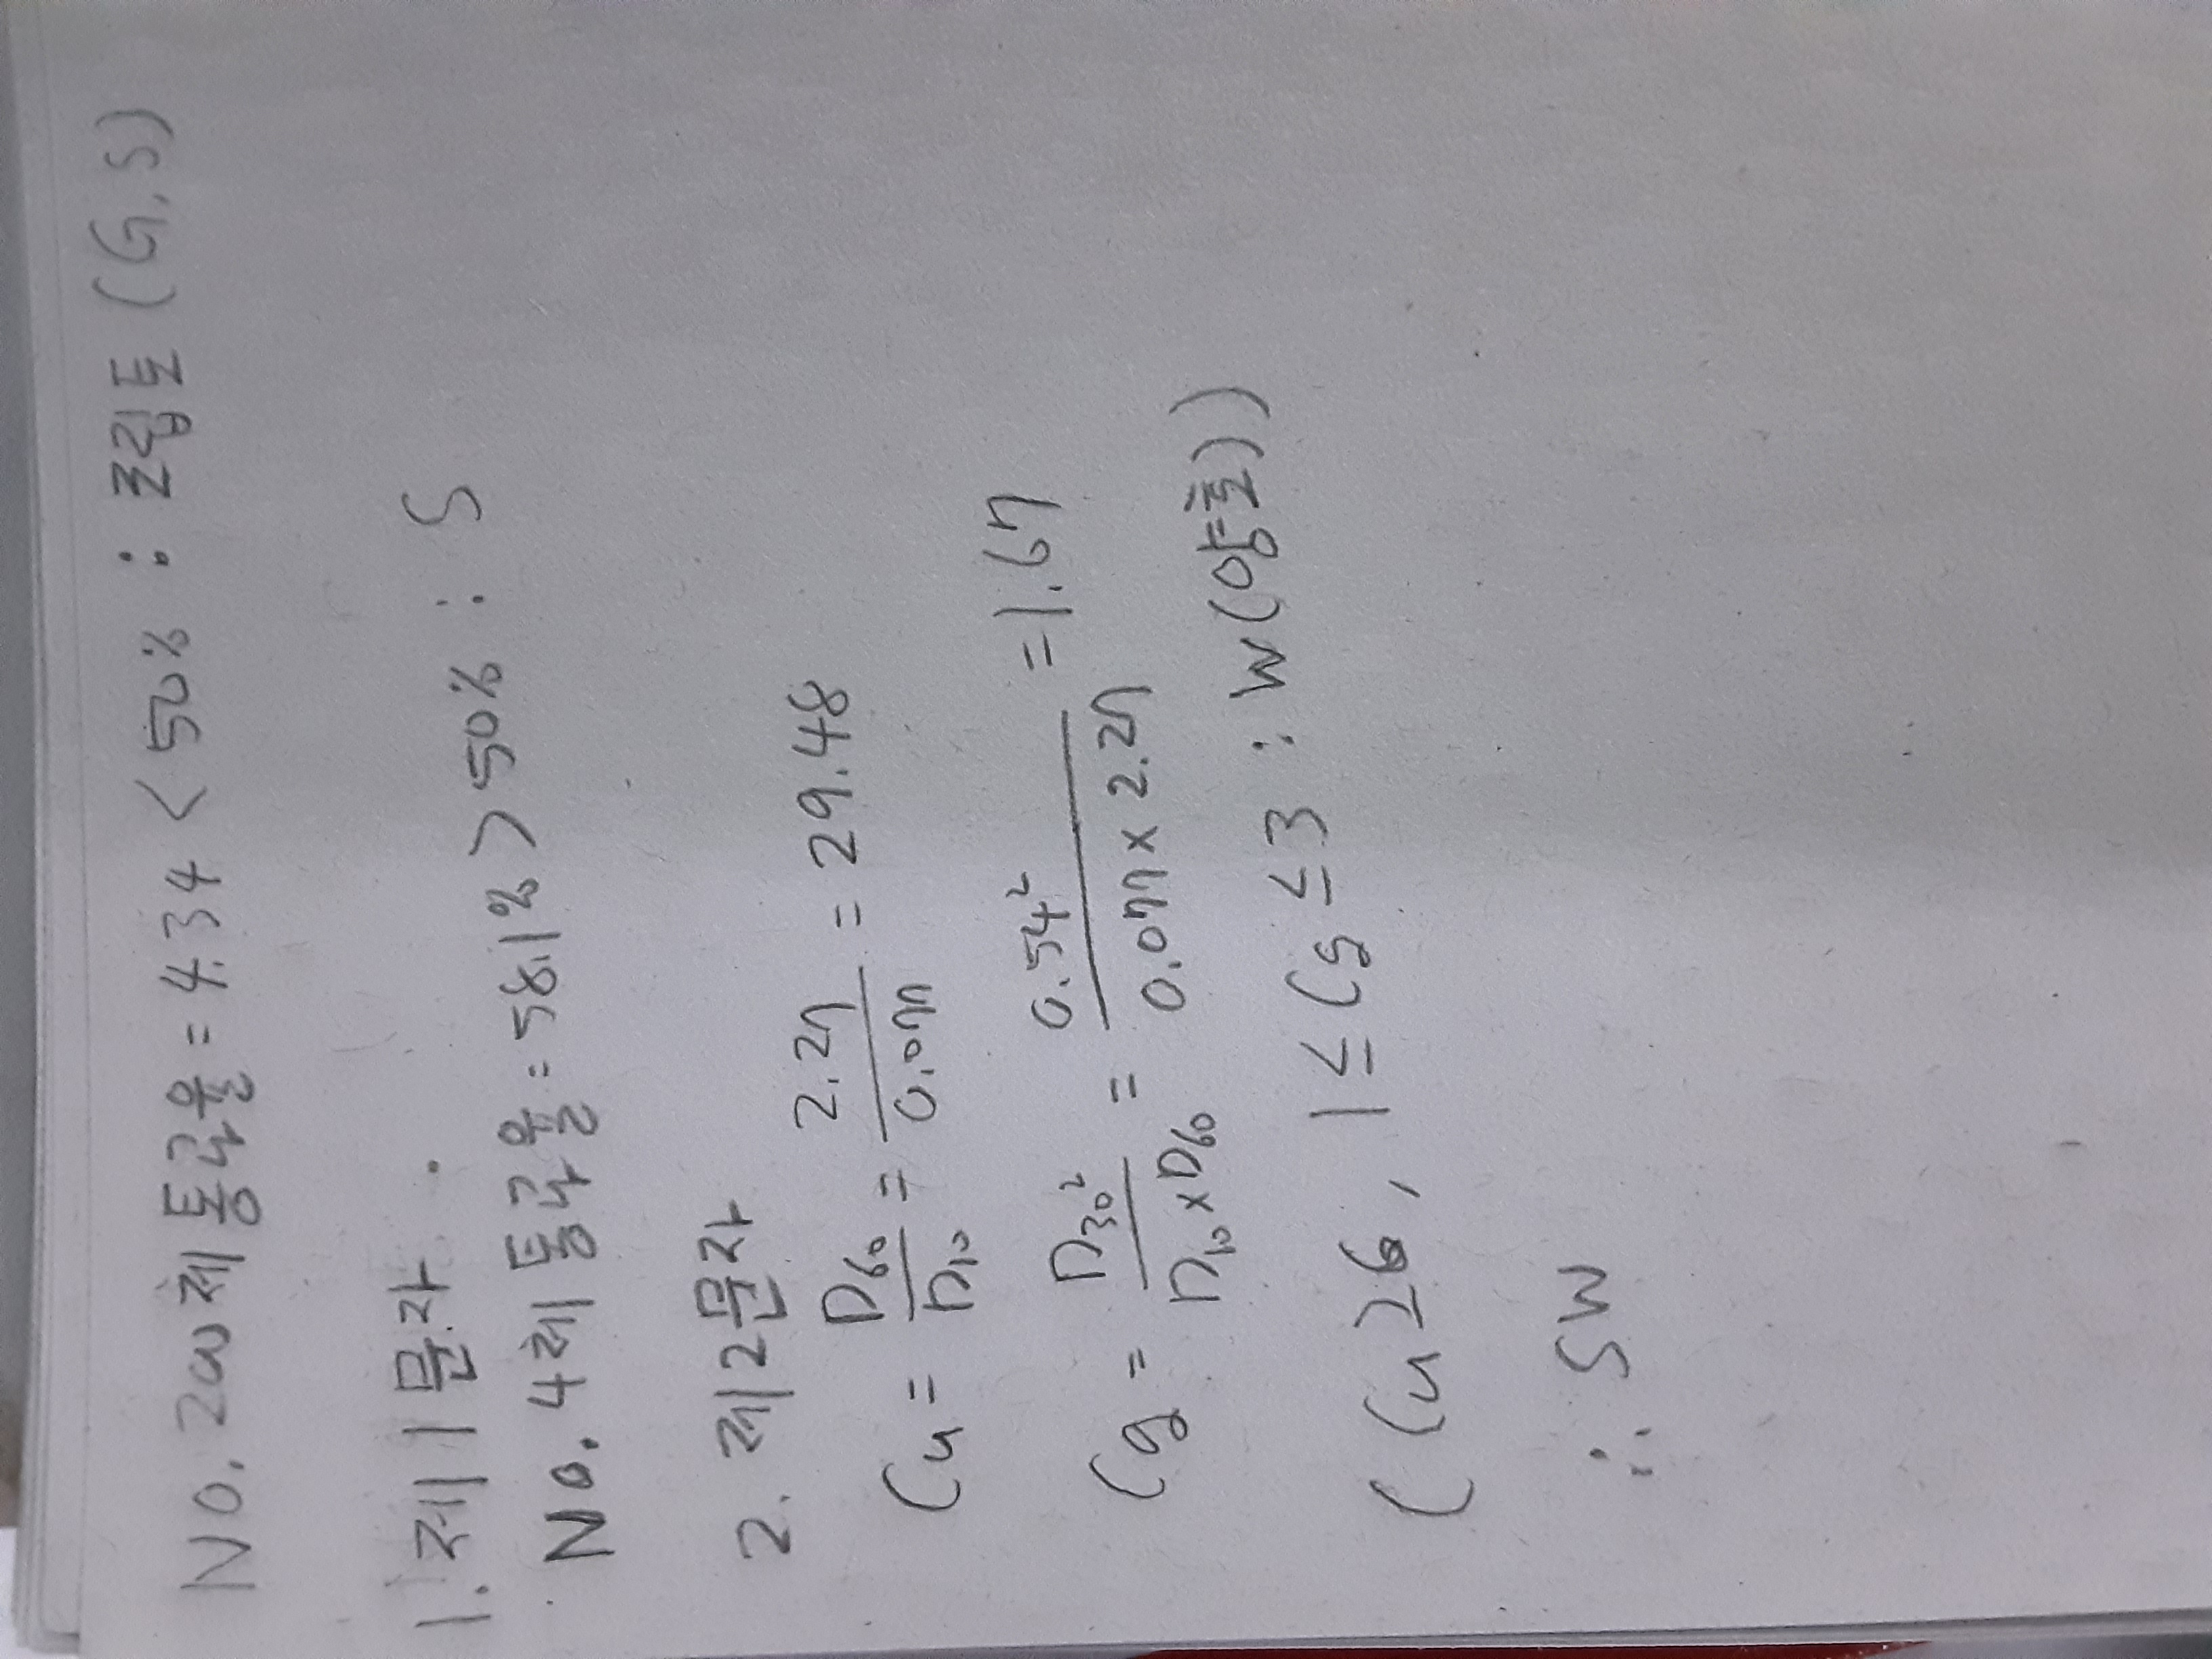 NO. 200체통과율 = 4.34 < 50% : 조립토 (G, S)
1. 제 1 문자
No. 4체 통과율 = 58.1% > 50% : S
2. 제2문자
Cu = D60/D10 = 2.27/0.077 = 29.48
Cg = D30²/D10×D60 = 0.54²/0.077×2.27 = 1.67
(Cu≥6, 1≤Cg≤3 : W(양호))
∴ SW